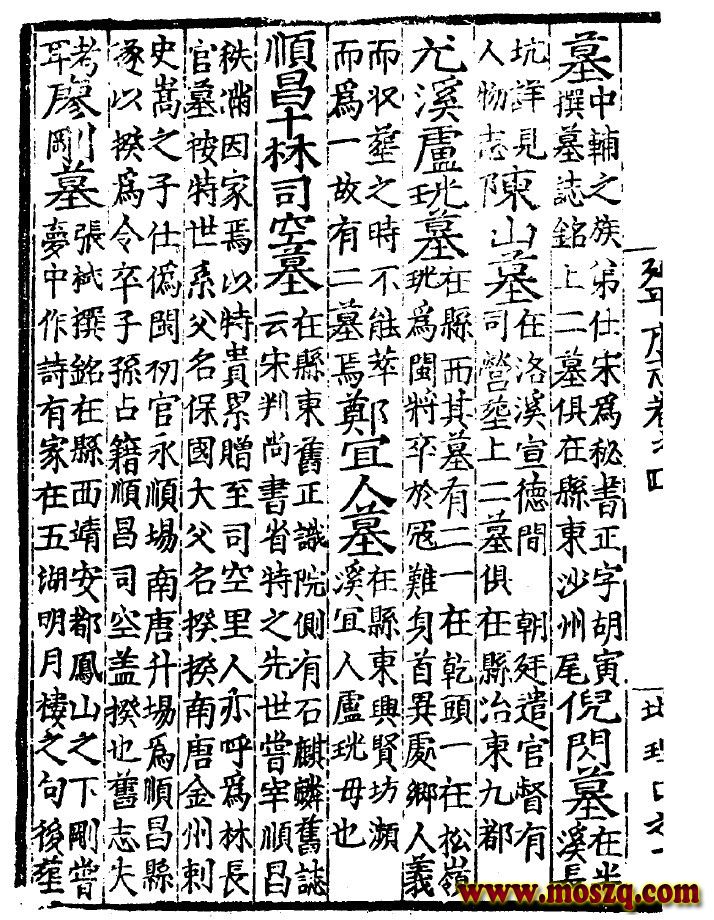 墓
中輔之族弟仕宋為秘書正字胡寅
撰墓誌銘上二墓俱在縣東沙州尾
倪閃墓
在半
溪長
坑詳見
人物志
陳山墓
在洛溪宣德間 朝廷遣官督有
司營塟上二墓俱在縣冶東九都
尤溪盧珖墓
在縣西其墓有二一在乾頭一在松嶺
珖為閩將卒於冦難身首異處鄉人義
而收塟之時不能萃
而為一故有二墓焉
鄭宜人墓
在縣東興賢坊瀕
溪宜人盧珖毋也
順昌十林司空墓
在縣東舊正識院側有石麒麟舊誌
云宋判尚書省特之先世嘗宰順昌
秩滿因家焉以特貴累贈至司空里人亦呼為林長
官墓按特世系父名保國大父名揆揆南唐金州刺
史嵩之子仕偽閩初官永順塲南唐升塲為順昌縣
遂以揆為令卒子孫占籍順昌司空盖揆也舊志失
考
耳
廖剛墓
張栻撰銘在縣西靖安都鳳山之下剛嘗
夢中作詩有家在五湖明月樓之句後塟
www.moszq.com